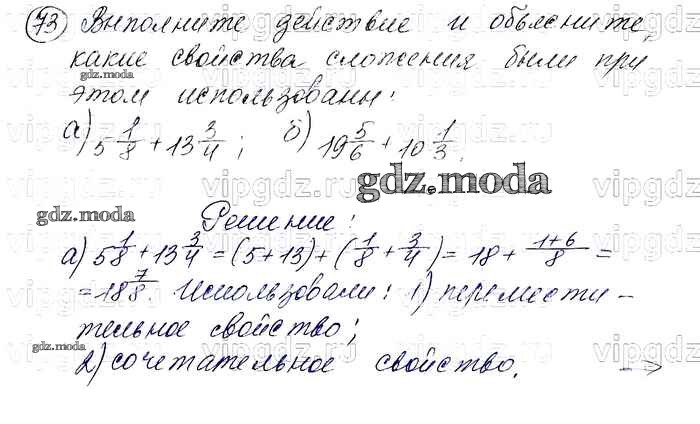 73 Выполните действие и объясните,
какие свойства сложения были при
gdz.moda
этом использованы:
а) 5 1/8 + 13 3/4 ; б) 19 5/6 + 10 1/3.
gdz.moda
gdz.moda
Решение:
а) 5 1/8 + 13 3/4 = (5+13) + (1/8 + 3/4) = 18 + (1+6)/8 =
= 18 7/8. Использовали: 1) перемести-
тельное свойство;
gdz.moda
2) сочетательное свойство. →